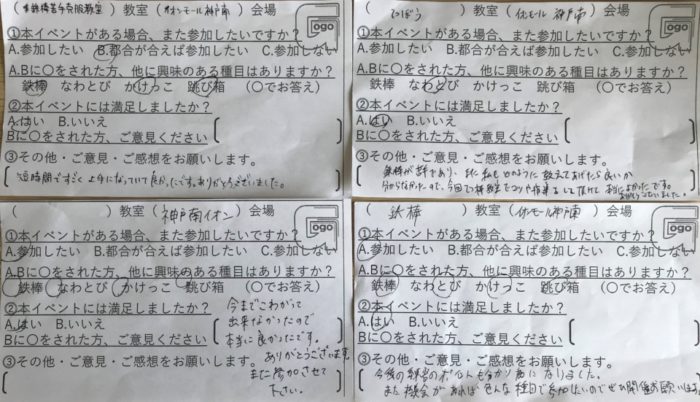 (鉄棒苦手克服教室)教室(イオンモール神戸南)会場
①本イベントがある場合、また参加したいですか？
A.参加したい B.都合が合えば参加したい C.参加しない
A.Bに〇をされた方、他に興味のある種目はありますか？
鉄棒 なわとび かけっこ 跳び箱 (〇でお答え)
②本イベントには満足しましたか？
A.はい B.いいえ
Bに〇をされた方、ご意見ください
③その他・ご意見・ご感想をお願いします。
短時間ですごく上手になっていて良かったです。ありがとうございました。
Logo
(てつぼう)教室(イオンモール 神戸南)会場
①本イベントがある場合、また参加したいですか？
A.参加したい B.都合が合えば参加したい C.参加しない
A.Bに〇をされた方、他に興味のある種目はありますか？
鉄棒 なわとび かけっこ 跳び箱 (〇でお答え)
②本イベントには満足しましたか？
A.はい B.いいえ
Bに〇をされた方、ご意見ください
③その他・ご意見・ご感想をお願いします。
鉄棒が苦手であり、
分からなかったので、今回
Logo
( )教室(神戸南イオン)会場
①本イベントがある場合、また参加したいですか？
A.参加したい B.都合が合えば参加したい C.参加しない
A.Bに〇をされた方、他に興味のある種目はありますか？
鉄棒 なわとび かけっこ 跳び箱 (〇でお答え)
②本イベントには満足しましたか？
A.はい B.いいえ
Bに〇をされた方、ご意見ください
③その他・ご意見・ご感想をお願いします。
今までこわがって
出来なかったので
本当に良かったです。
ありがとうございます。
また参加させて
下さい。
Logo
(鉄棒)教室(イオンモール神戸南)会場
①本イベントがある場合、また参加したいですか？
A.参加したい B.都合が合えば参加したい C.参加しない
A.Bに〇をされた方、他に興味のある種目はありますか？
鉄棒 なわとび かけっこ 跳び箱 (〇でお答え)
②本イベントには満足しましたか？
A.はい B.いいえ
Bに〇をされた方、ご意見ください
③その他・ご意見・ご感想をお願いします。
今後の練習のポイントもわかり為になりました。
また機会があれば色んな種目で参加したいのでぜひ開催お願いします。
Logo